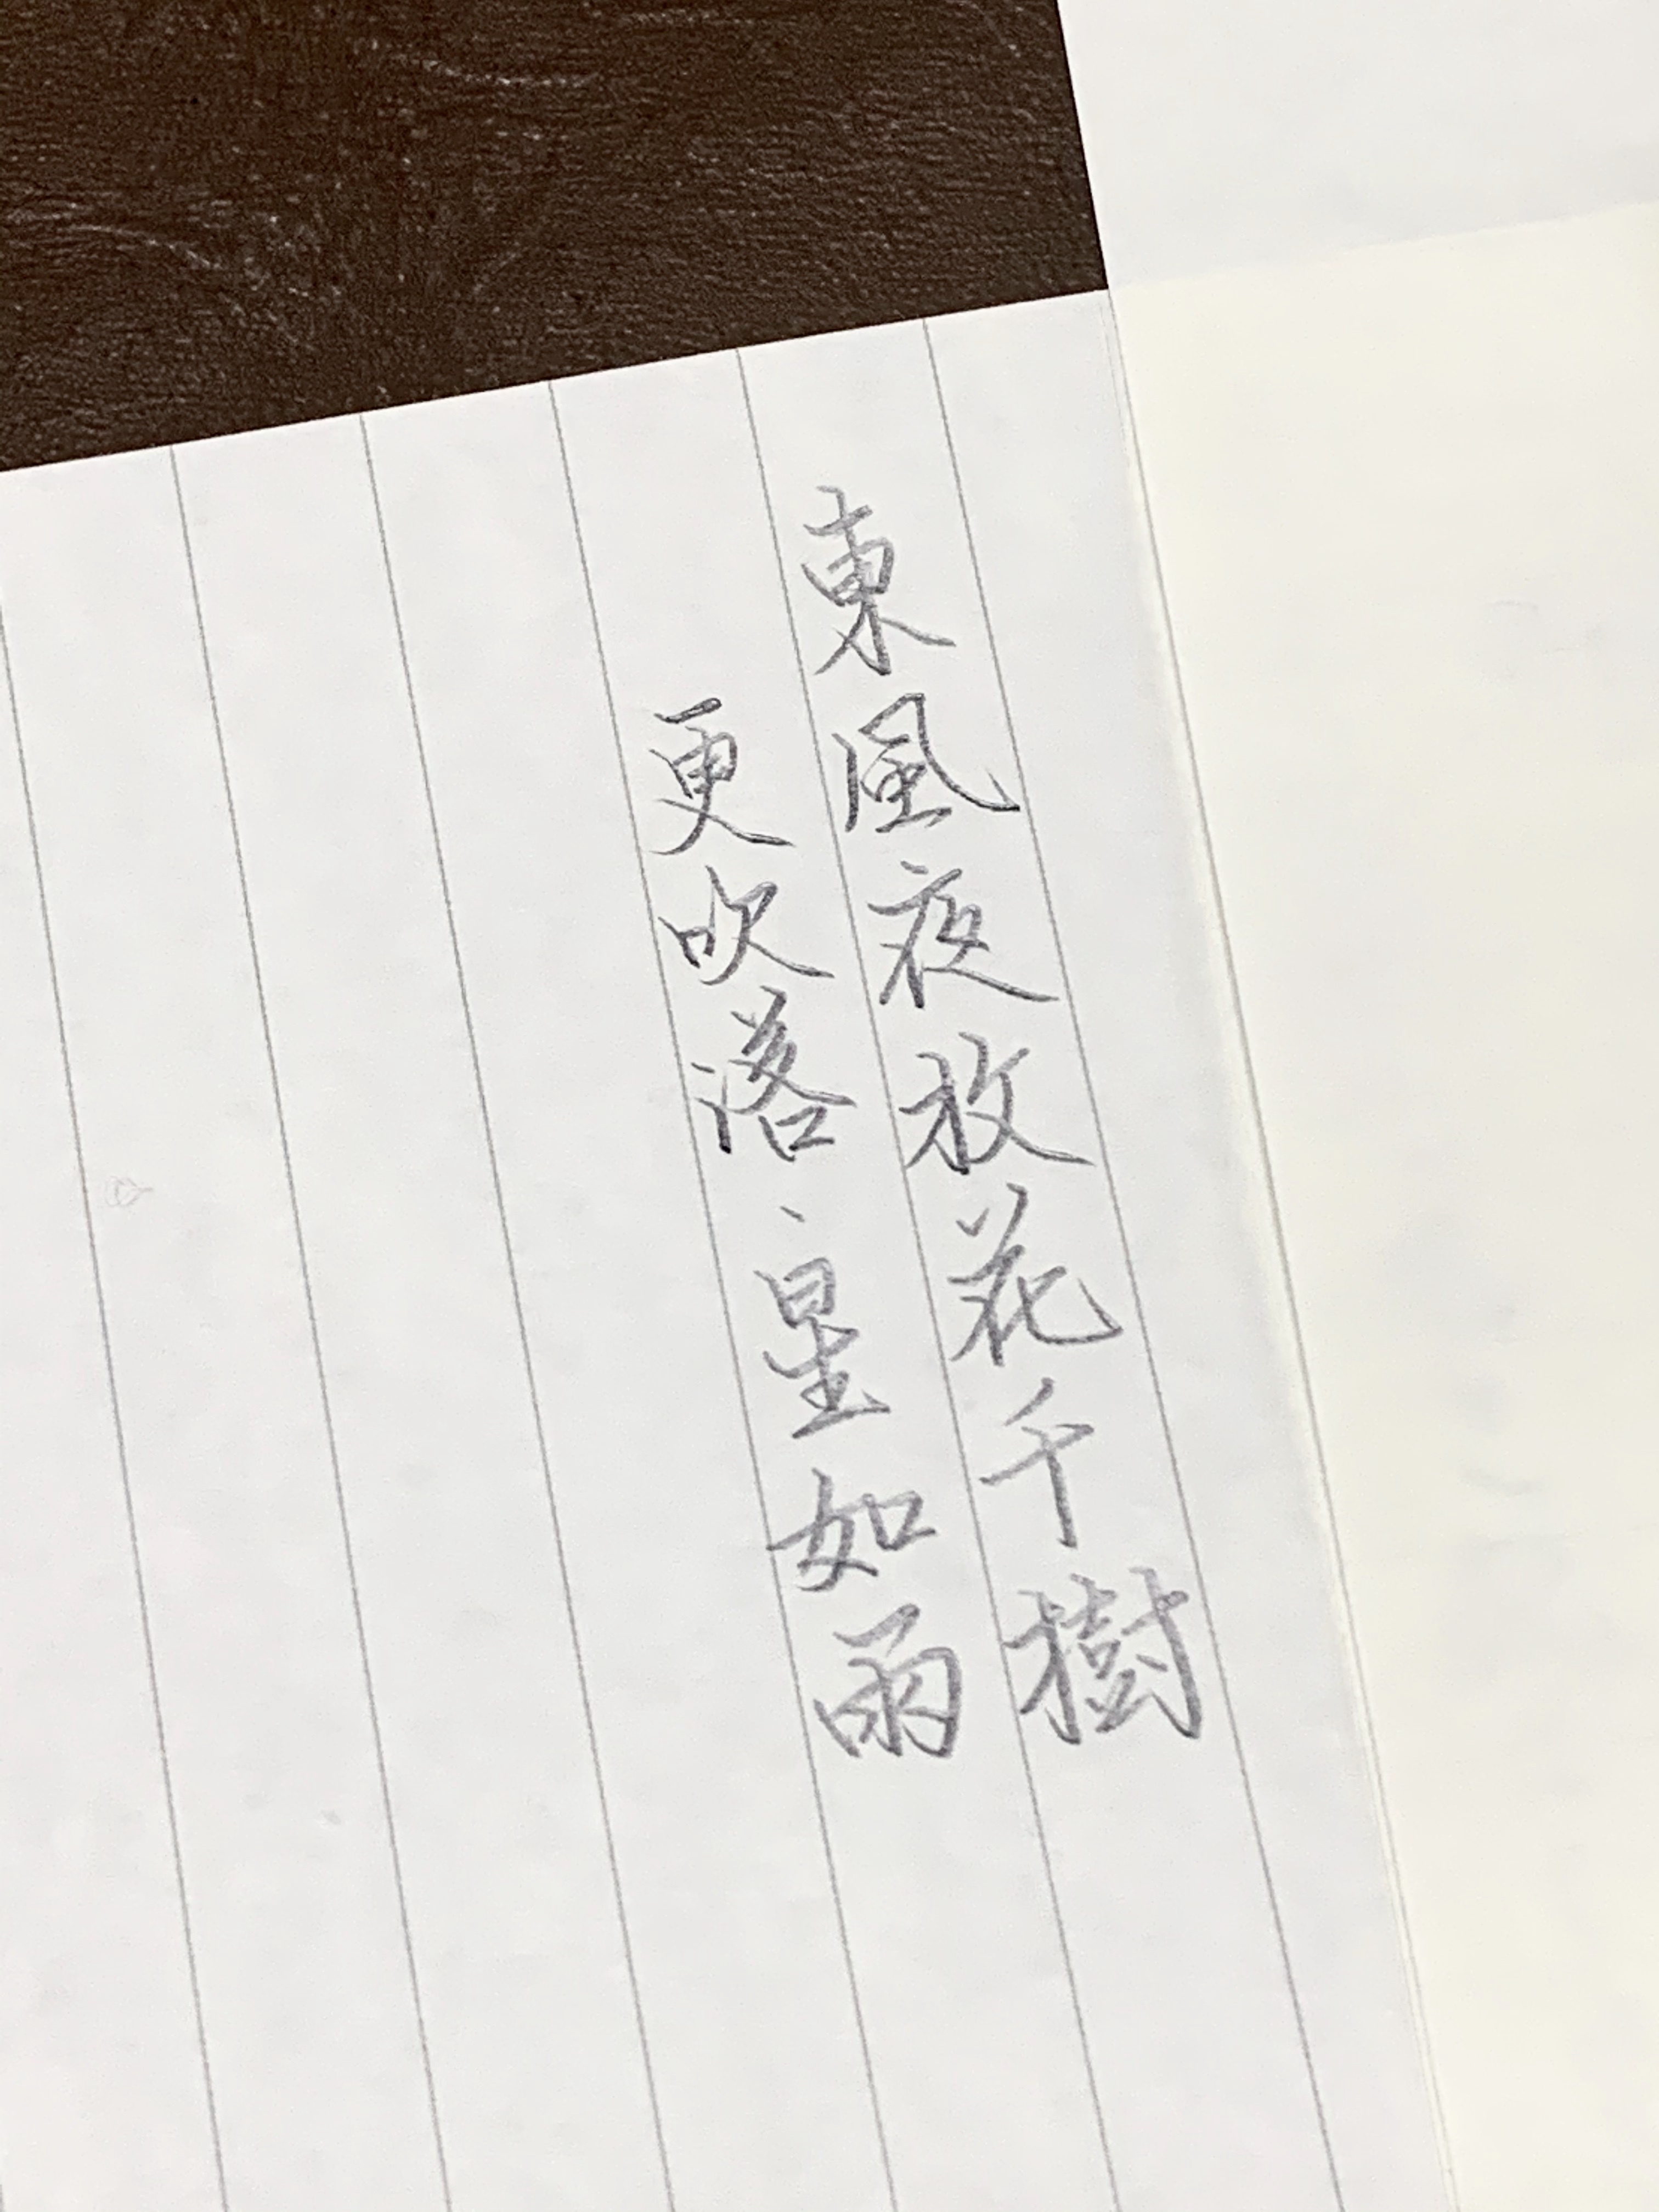 東風夜放花千樹
更吹落、星如雨